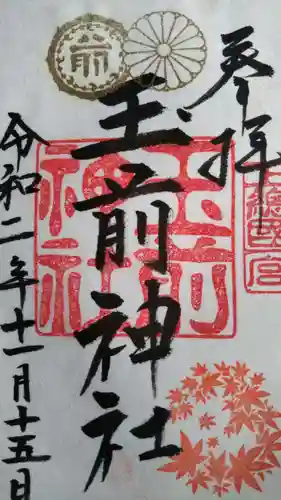 前
参拝
上總國一宮
玉前神社
玉前
神社
令和二年十一月十五日